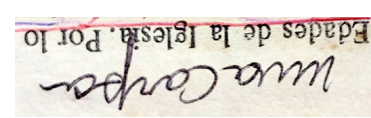 Carpa
Edades de la Iglesia. Por lo